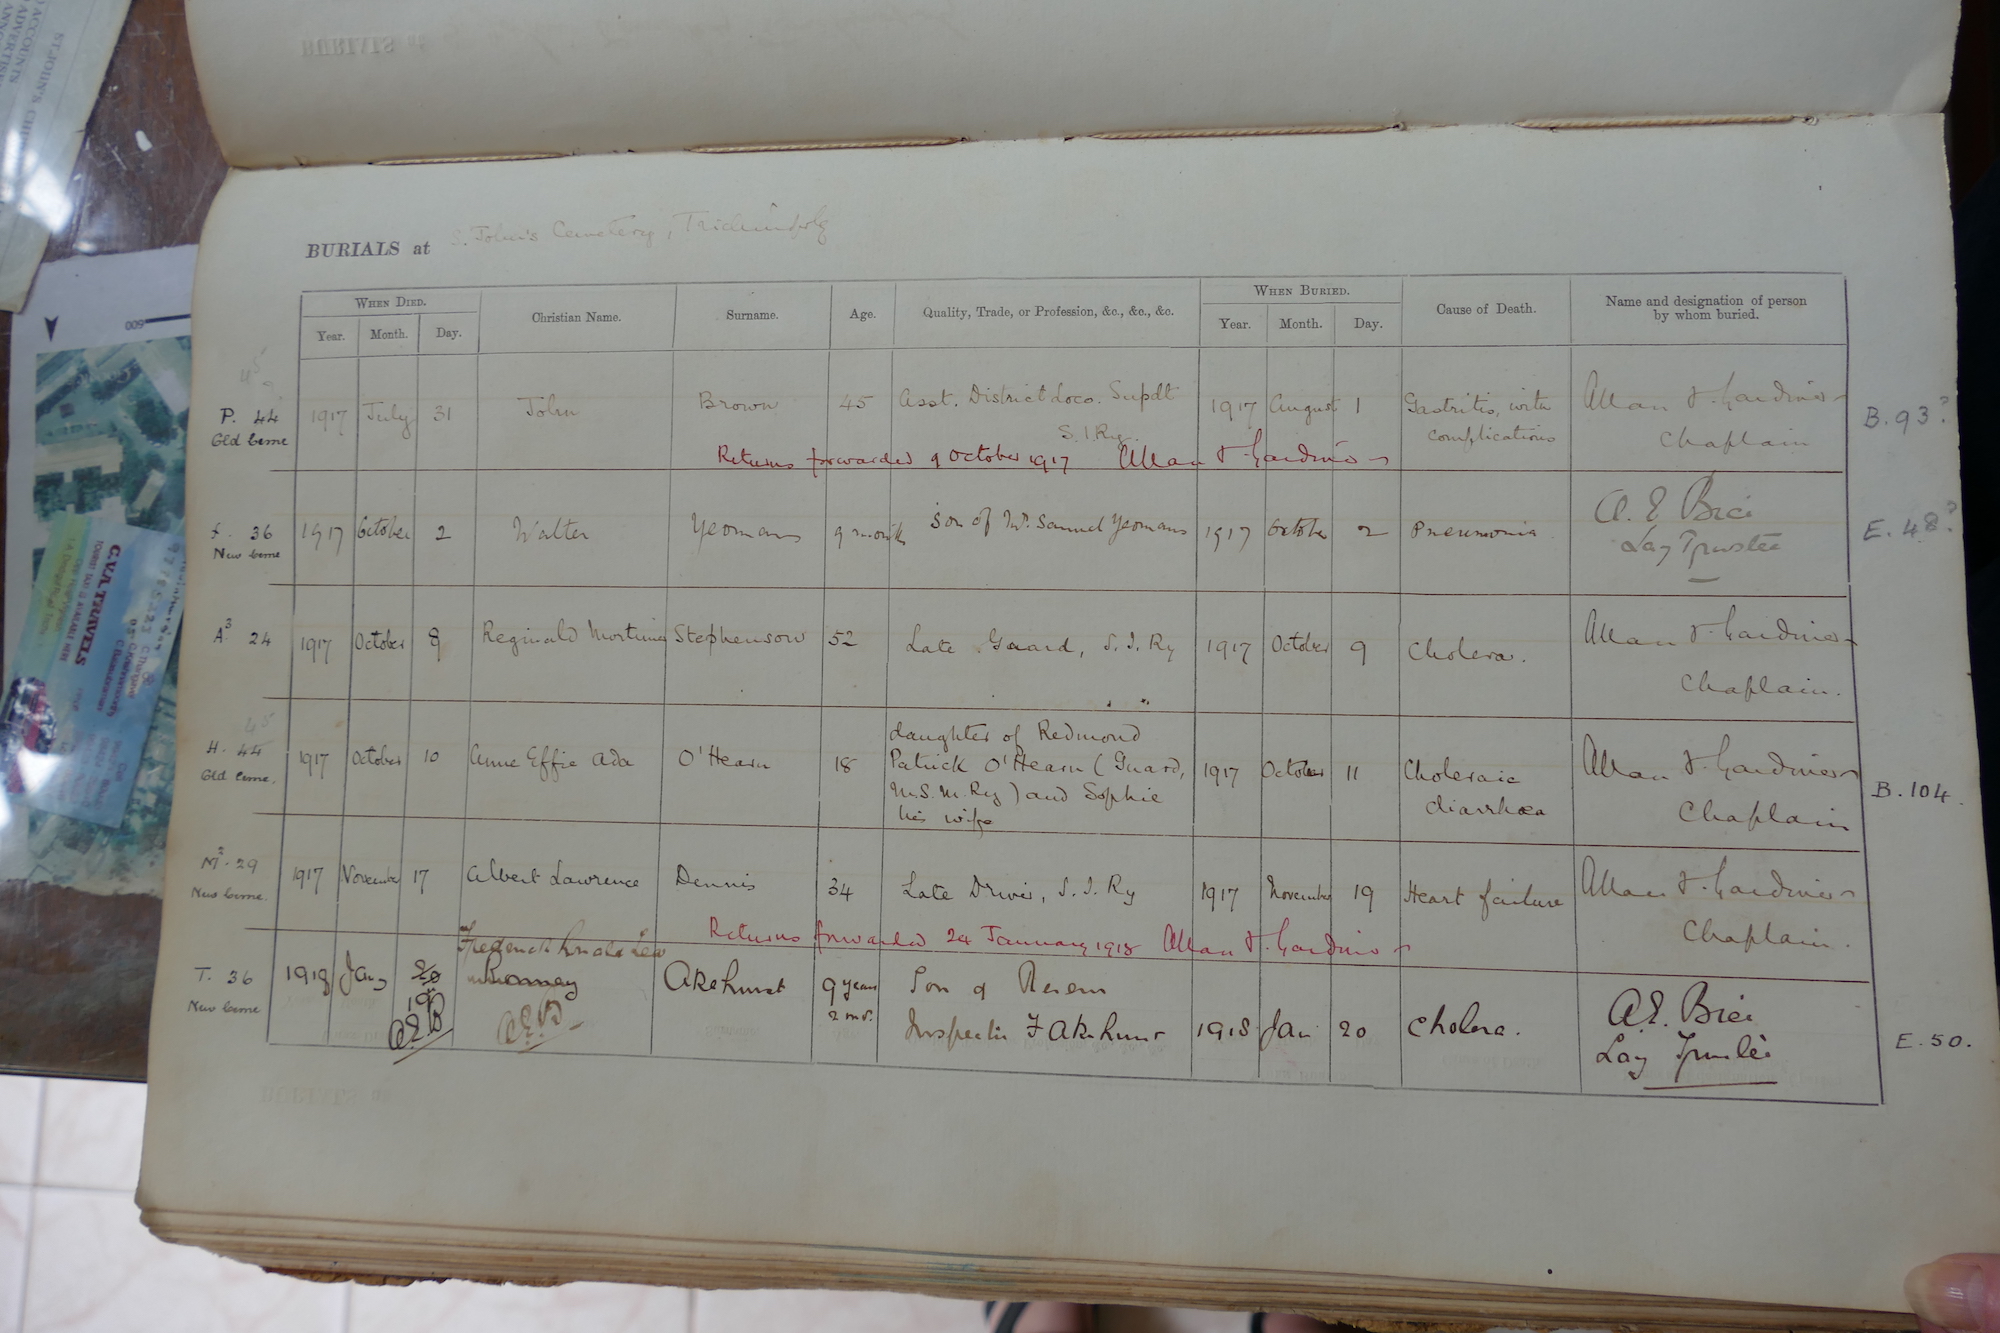 BURIALS at S. John's Cemetery,
WHEN DIED. Christian Name. Surname. Age. Quality, Trade, or Profession, &c., &c., &c. WHEN BURIED. Cause of Death. Name and designation of person by whom buried.
Year. Month. Day. Year. Month. Day.
P. 44 1917 July 31 John Brown 45 Asst. District Loco. Supdt 1917 August 1 Gastritis, with Allan F. Gardiner B. 93?
S. I. Ry. complications Chaplain
Returns forwarded 9 October 1917 Allan F. Gardiner
36 1917 October 2 Walter Yeomans 9 month Son of Mr. Samuel Yeomans 1917 October 2 Pneumonia A. E. E. 48?
Lay Trustee
A3 24 1917 October 8 Reginald Mortimer Stephenson 52 Late Guard, S. I. Ry 1917 October 9 Cholera. Allan F. Gardiner
Chaplain.
45
H. 44 1917 October 10 Anne Effie Ada O'Hearn 18 daughter of Redmond 1917 October 11 Choleraic Allan F. Gardiner B. 104.
Patrick O'Hearn (Guard, diarrhœa Chaplain
M.S.M. Ry) and Sophie
his wife
M2. 29 1917 November 17 Albert Lawrence Dennis 34 Late Driver, S. I. Ry 1917 November 19 Heart failure Allan F. Gardiner
Chaplain.
Returns forwarded 24 January 1918 Allan F. Gardiner
T. 36 1918 Jany 19 Frederick Akehurst 9 years Son of 1918 Jan 20 Cholera. A. E. E. 50.
2 mos. Inspector F Akehurst Lay Trustee
A E B
C.V.R. TRAVELS
600